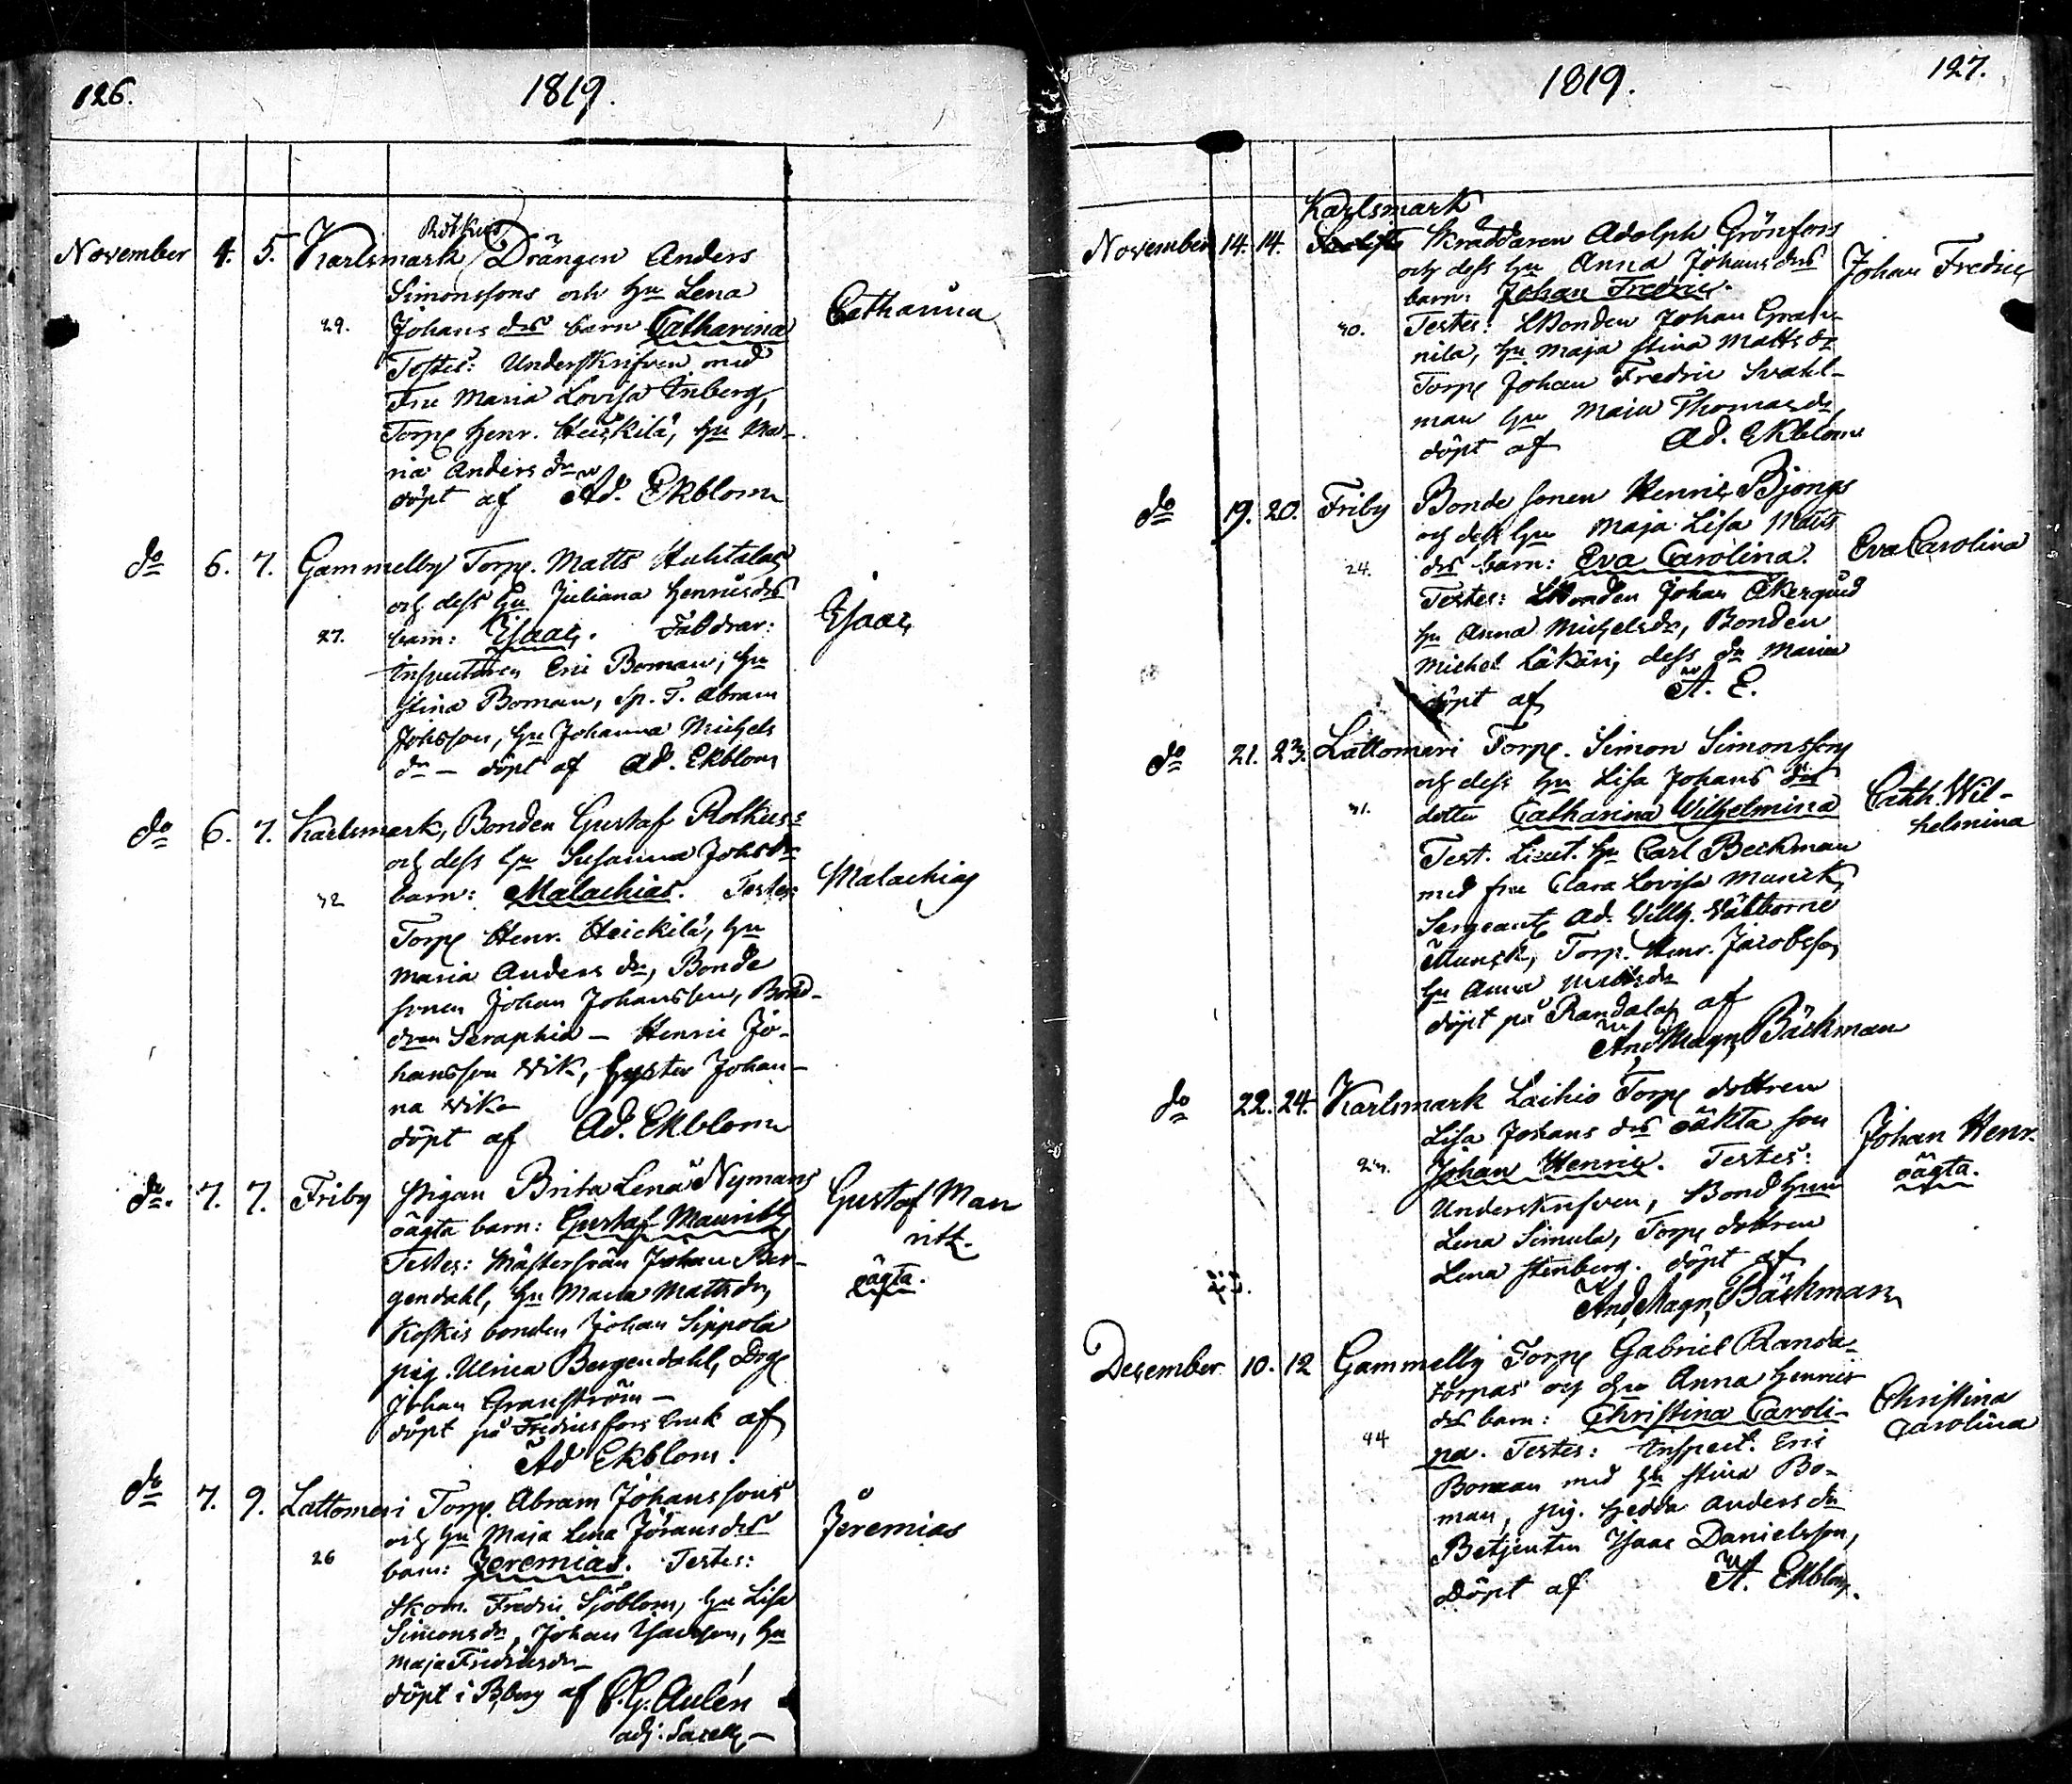 126.
1819.
November 4. 5. Karlsmark Rotkus Drängen Anders
Simonssons och hu Lena
29. Johans drs barn Catharina
Catharina
Testes: Underskrifven med
Fru Maria Lovisa Enberg,
Torp. Henr. Heickilä, hu Ma-
ria Anders dr
döpt af Ad. Ekblom
do 6. 7. Gammelby Torp. Matts Huhtalas
och dess hu Juliana Henricsdrs
27. barn: Esaac. Faddrar:
Esaac
Inspectoren Eric Boman, hu
Stina Boman, Sp. T. Abram
Johsson, hu Johanna Michels
dr – döpt af Ad. Ekblom
do 6. 7. Karlsmark, Bonden Gustaf Rotkuss
och dess hu Susanna Johsdrs
32 barn: Malachias. Testes:
Malachias
Torp. Henr. Heickilä, hu
Maria Anders dr, Bonde
sonen Johan Johansson, Bond-
dren Seraphia – Henric Jo-
hansson Wik, hustru Johan-
na Wik
döpt af Ad. Ekblom
do. 7. 7. Friby Pigan Brita Lena Nymans
oägta barn: Gustaf Mauritz
Gustaf Mau
ritz.
oägta.
Testes: Mästersvän Johan Ber-
gendahl, hu Maria Mattsdr,
Koskis bonden Johan Sippola
pig. Ulrica Bergendahl, Drg.
Johan Granström –
döpt på Fredricsfors bruk af
Ad Ekblom.
do 7. 9. Lattomeri Torp. Abram Johanssons
och hu Maja Lena Jöransdrs
26 barn: Jeremias. Testes:
Jeremias
Skom. Fredric Sjöblom, hu Lisa
Simonsdr, Johan Isacsson, hu
Maja Fredricsdr –
döpt i Bborg af P. G. Aulén
adj. Sacell. –
1819.
127.
Karlsmark
November 14. 14. Skräddaren Adolph Grönfors
och dess hu Anna Johansdrs
barn: Johan Fredric.
Johan Fredric
30. Testes: LBonden Johan Gran-
nila, hu Maja Stina Matts dr
Torp. Johan Fredric Svahl-
man hu Maja Thomasdr
döpt af Ad. Ekblom
do 19. 20. Friby Bonde sonen Henric Bjongs
och dess hu Maja Lisa Matts
24. drs barn: Eva Carolina.
Eva Carolina
Testes: LBonden Johan Åkerqvid
hu Anna Michelsdr, Bonden
Michel Läkäri, dess dr Maria
döpt af A. E.
do 21. 23. Lattomeri Torp. Simon Simonssons
och dess hu Lisa Johans drs
31. dotter Catharina Wilhelmina
Cath. Wil-
helmina
Test. Lieut. hr Carl Beckman
med fru Clara Lovisa Munck,
Sergeant Ad. Willh.
Munck, Torp. Henr. Jacobsson,
hu Anna Mattsdr
döpt på Randala af
And Magn Bäckman
do 22. 24. Karlsmark Laihio Torp. dottren
Lisa Johans drs oäkta son
23. Johan Henric. Testes:
Johan Henr.
oägta.
Underskrifven, Bond hun
Lena Simula, Torp. dottren
Lena Stenberg. döpt af
And Magn Bäckman
December 10. 12 Gammelby Torp. Gabriel Randa-
torpas och hu Anna Henrics
drs barn: Christina Caroli-
Christina
Carolina
44 na. Testes: Inspect. Eric
Boman med hu Stina Bo-
man, pig. Hedda Anders dr
Betjenten Isaac Danielsson,
döpt af A. Ekblom.